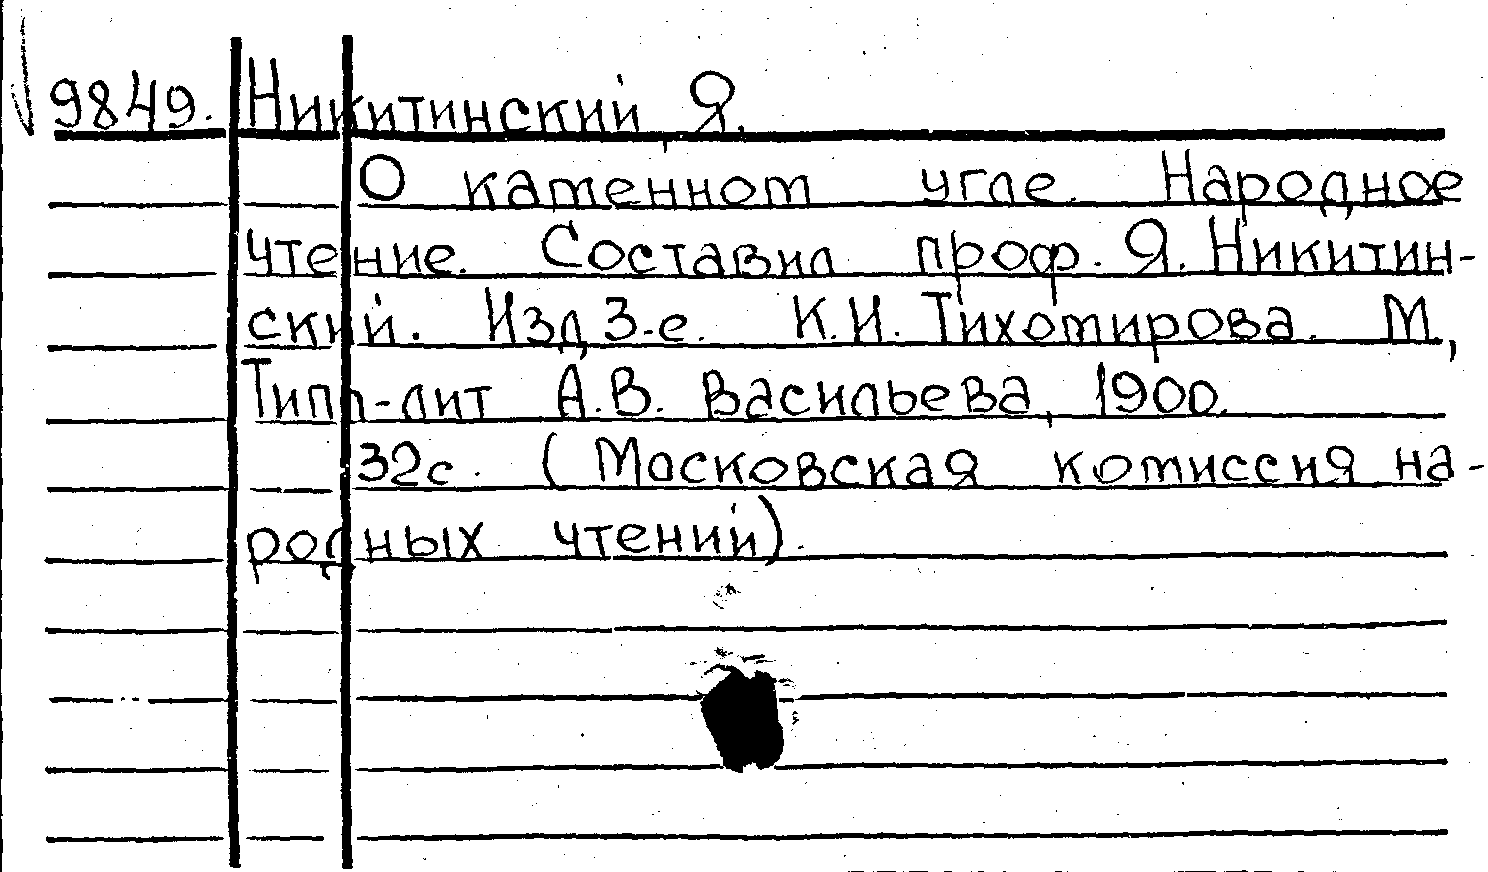 9849. Никитинский, Я.
О каменном угле. Народное
чтение. Составил проф. Я. Никитин-
ский. Изд 3-е. К.И. Тихомирова. М,
Типо-лит А.В. Васильева, 1900.
32с. (Московская комиссия на-
родных чтений).